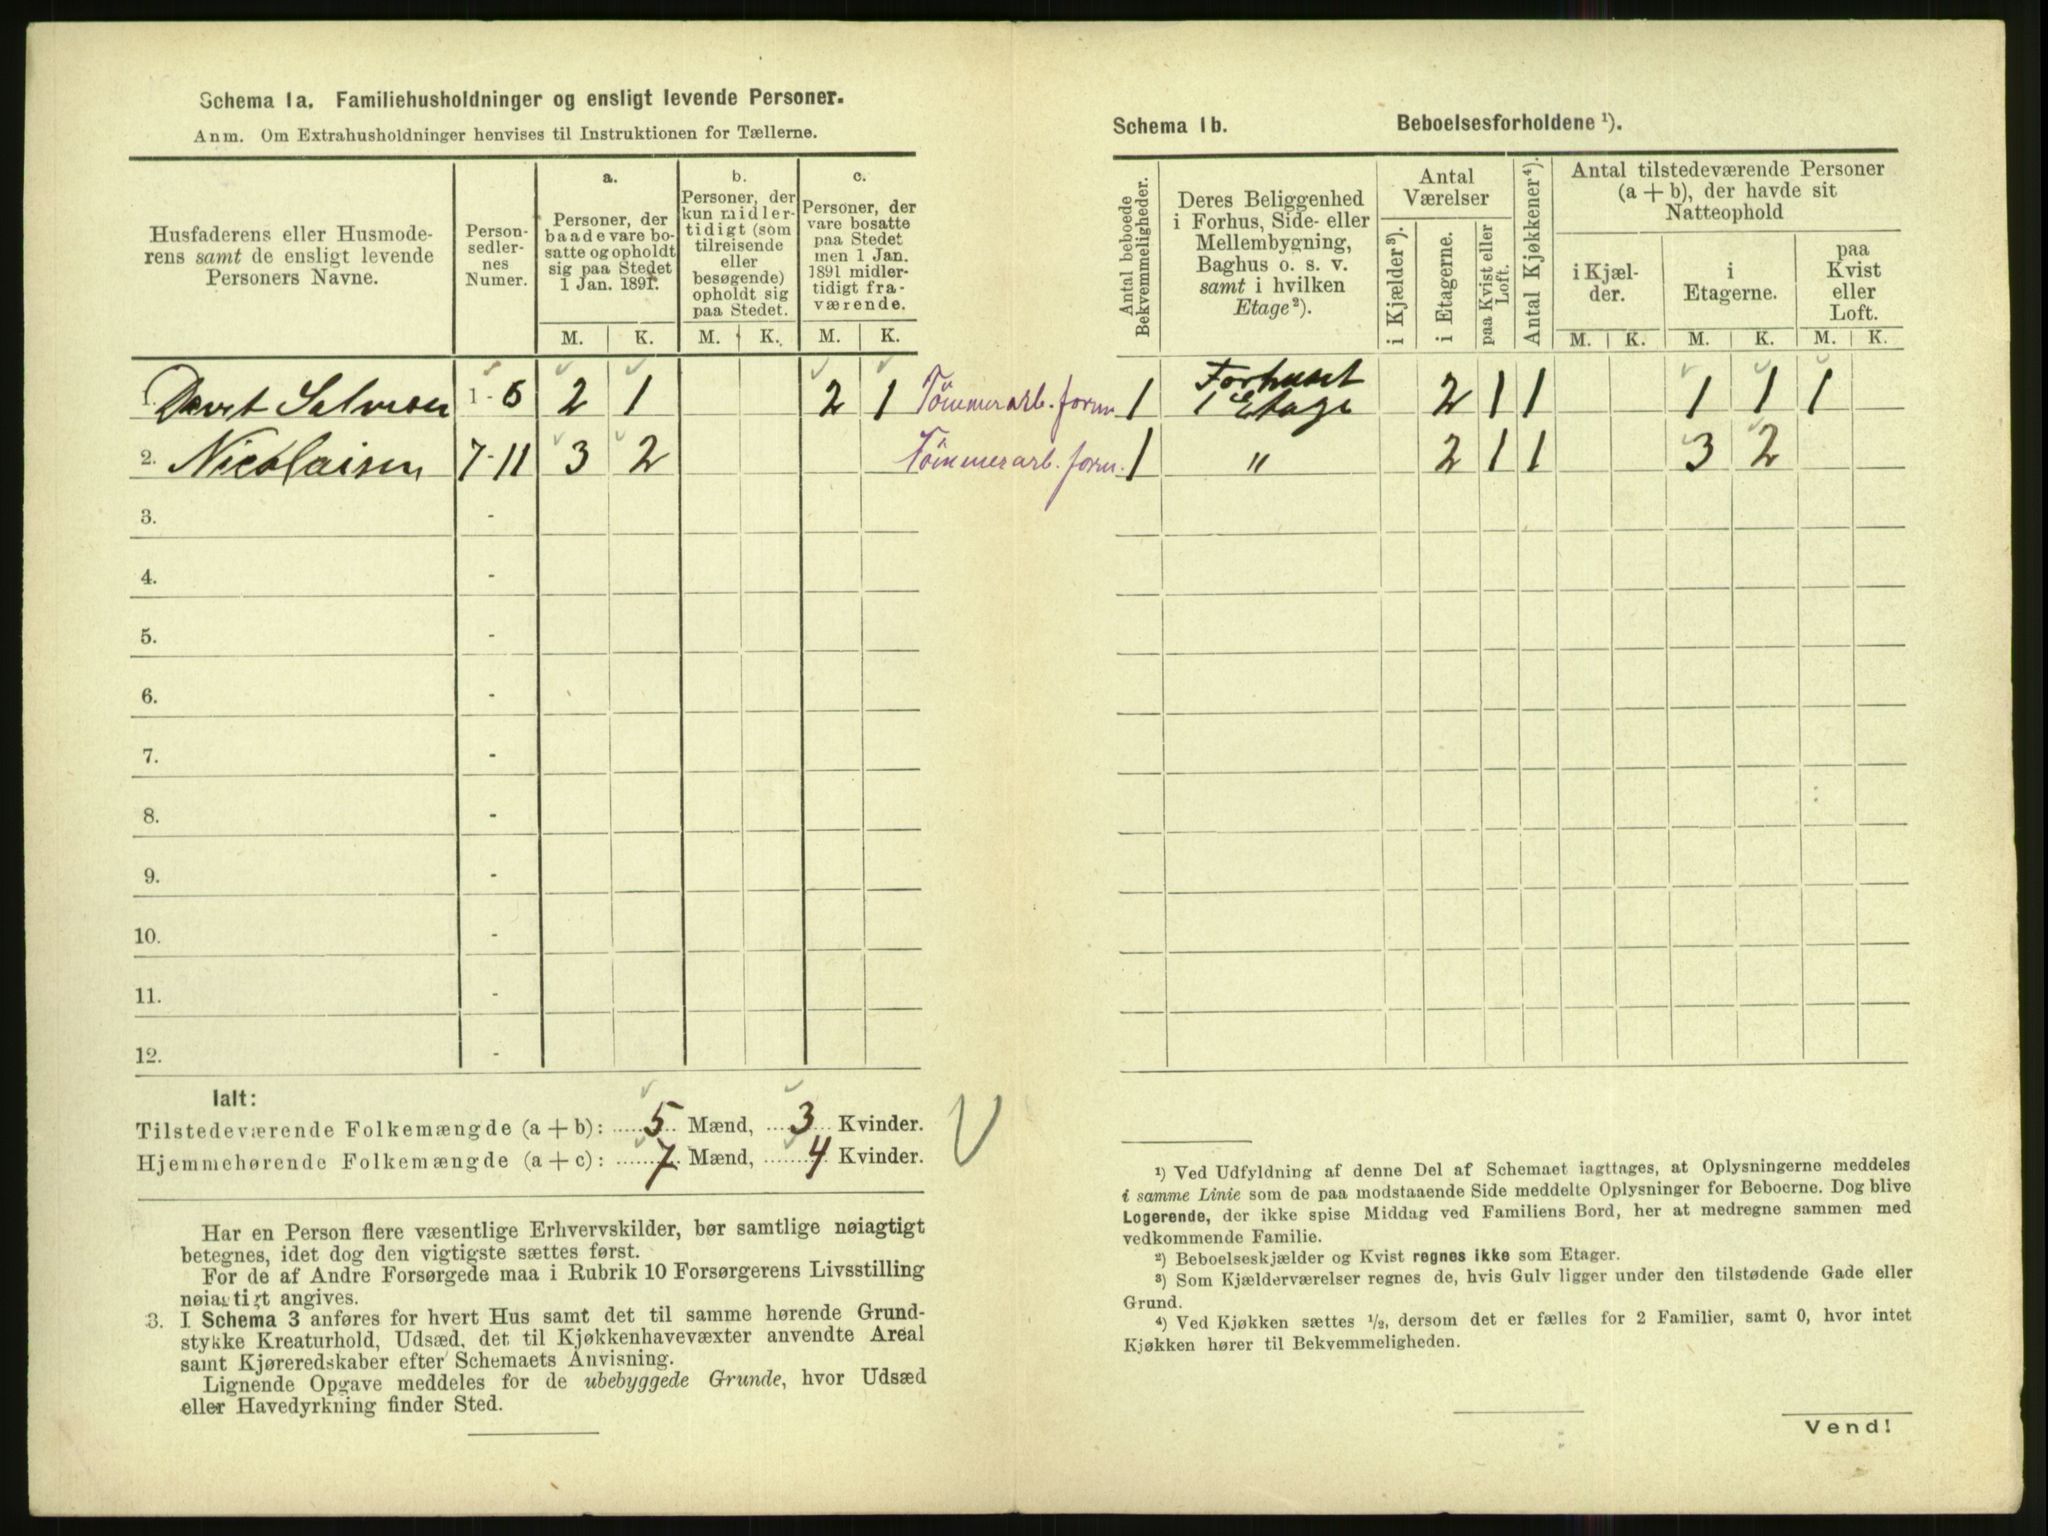 Schema 1a. Familiehusholdninger og ensligt levende Personer.
Anm. Om Extrahusholdninger henvises til Instruktionen for Tællerne.
Husfaderens eller Husmode-
rens samt de ensligt levende
Personers Navne.
Person-
sedler-
nes
Numer.
a.
Personer, der
baade vare bo-
satte og opholdt
sig paa Stedet
1 Jan. 1891.
b.
Personer, der
kun midler-
tidigt (som
tilreisende
eller
besøgende)
opholdt sig
paa Stedet.
c.
Personer, der
vare bosatte
paa Stedet
men 1 Jan.
1891 midler-
tidigt fra-
værende.
M. K. M. K. M. K.
1. Salvesen 1-6 2 1 2 1 Tömmerarb. form.
2. Nicolaisen 7-11 3 2 Tömmerarb. form.
3. -
4. -
5. -
6. -
7. -
8. -
9. -
10. -
11. -
12. -
Ialt:
Tilstedeværende Folkemængde (a + b): 5 Mænd, 3 Kvinder.
Hjemmehørende Folkemængde (a + c): 7 Mænd, 4 Kvinder.
Har en Person flere væsentlige Erhvervskilder, bør samtlige nøiagtigt
betegnes, idet dog den vigtigste sættes først.
For de af Andre Forsørgede maa i Rubrik 10 Forsørgerens Livsstilling
nøiagtigt angives.
3. I Schema 3 anføres for hvert Hus samt det til samme hørende Grund-
stykke Kreaturhold, Udsæd, det til Kjøkkenhavevæxter anvendte Areal
samt Kjøreredskaber efter Schemaets Anvisning.
Lignende Opgave meddeles for de ubebyggede Grunde, hvor Udsæd
eller Havedyrkning finder Sted.
Schema 1b. Beboelsesforholdene ¹).
Antal beboede
Bekvemmeligheder.
Deres Beliggenhed
i Forhus, Side- eller
Mellembygning,
Baghus o. s. v.
samt i hvilken
Etage²).
Antal
Værelser
i Kjælder³).
i Etagerne.
paa Kvist eller
Loft.
Antal Kjøkkener⁴).
Antal tilstedeværende Personer
(a + b), der havde sit
Natteophold
i Kjæl-
der.
i
Etagerne.
paa
Kvist
eller
Loft.
M. K. M. K. M. K.
1 Forhuset
1 Etage 2 1 1 1 1 1
1 " 2 1 1 3 2
¹) Ved Udfyldning af denne Del af Schemaet iagttages, at Oplysningerne meddeles
i samme Linie som de paa modstaaende Side meddelte Oplysninger for Beboerne. Dog blive
Logerende, der ikke spise Middag ved Familiens Bord, her at medregne sammen med
vedkommende Familie.
²) Beboelseskjælder og Kvist regnes ikke som Etager.
³) Som Kjælderværelser regnes de, hvis Gulv ligger under den tilstødende Gade eller
Grund.
⁴) Ved Kjøkken sættes ½, dersom det er fælles for 2 Familier, samt 0, hvor intet
Kjøkken hører til Bekvemmeligheden.
Vend!